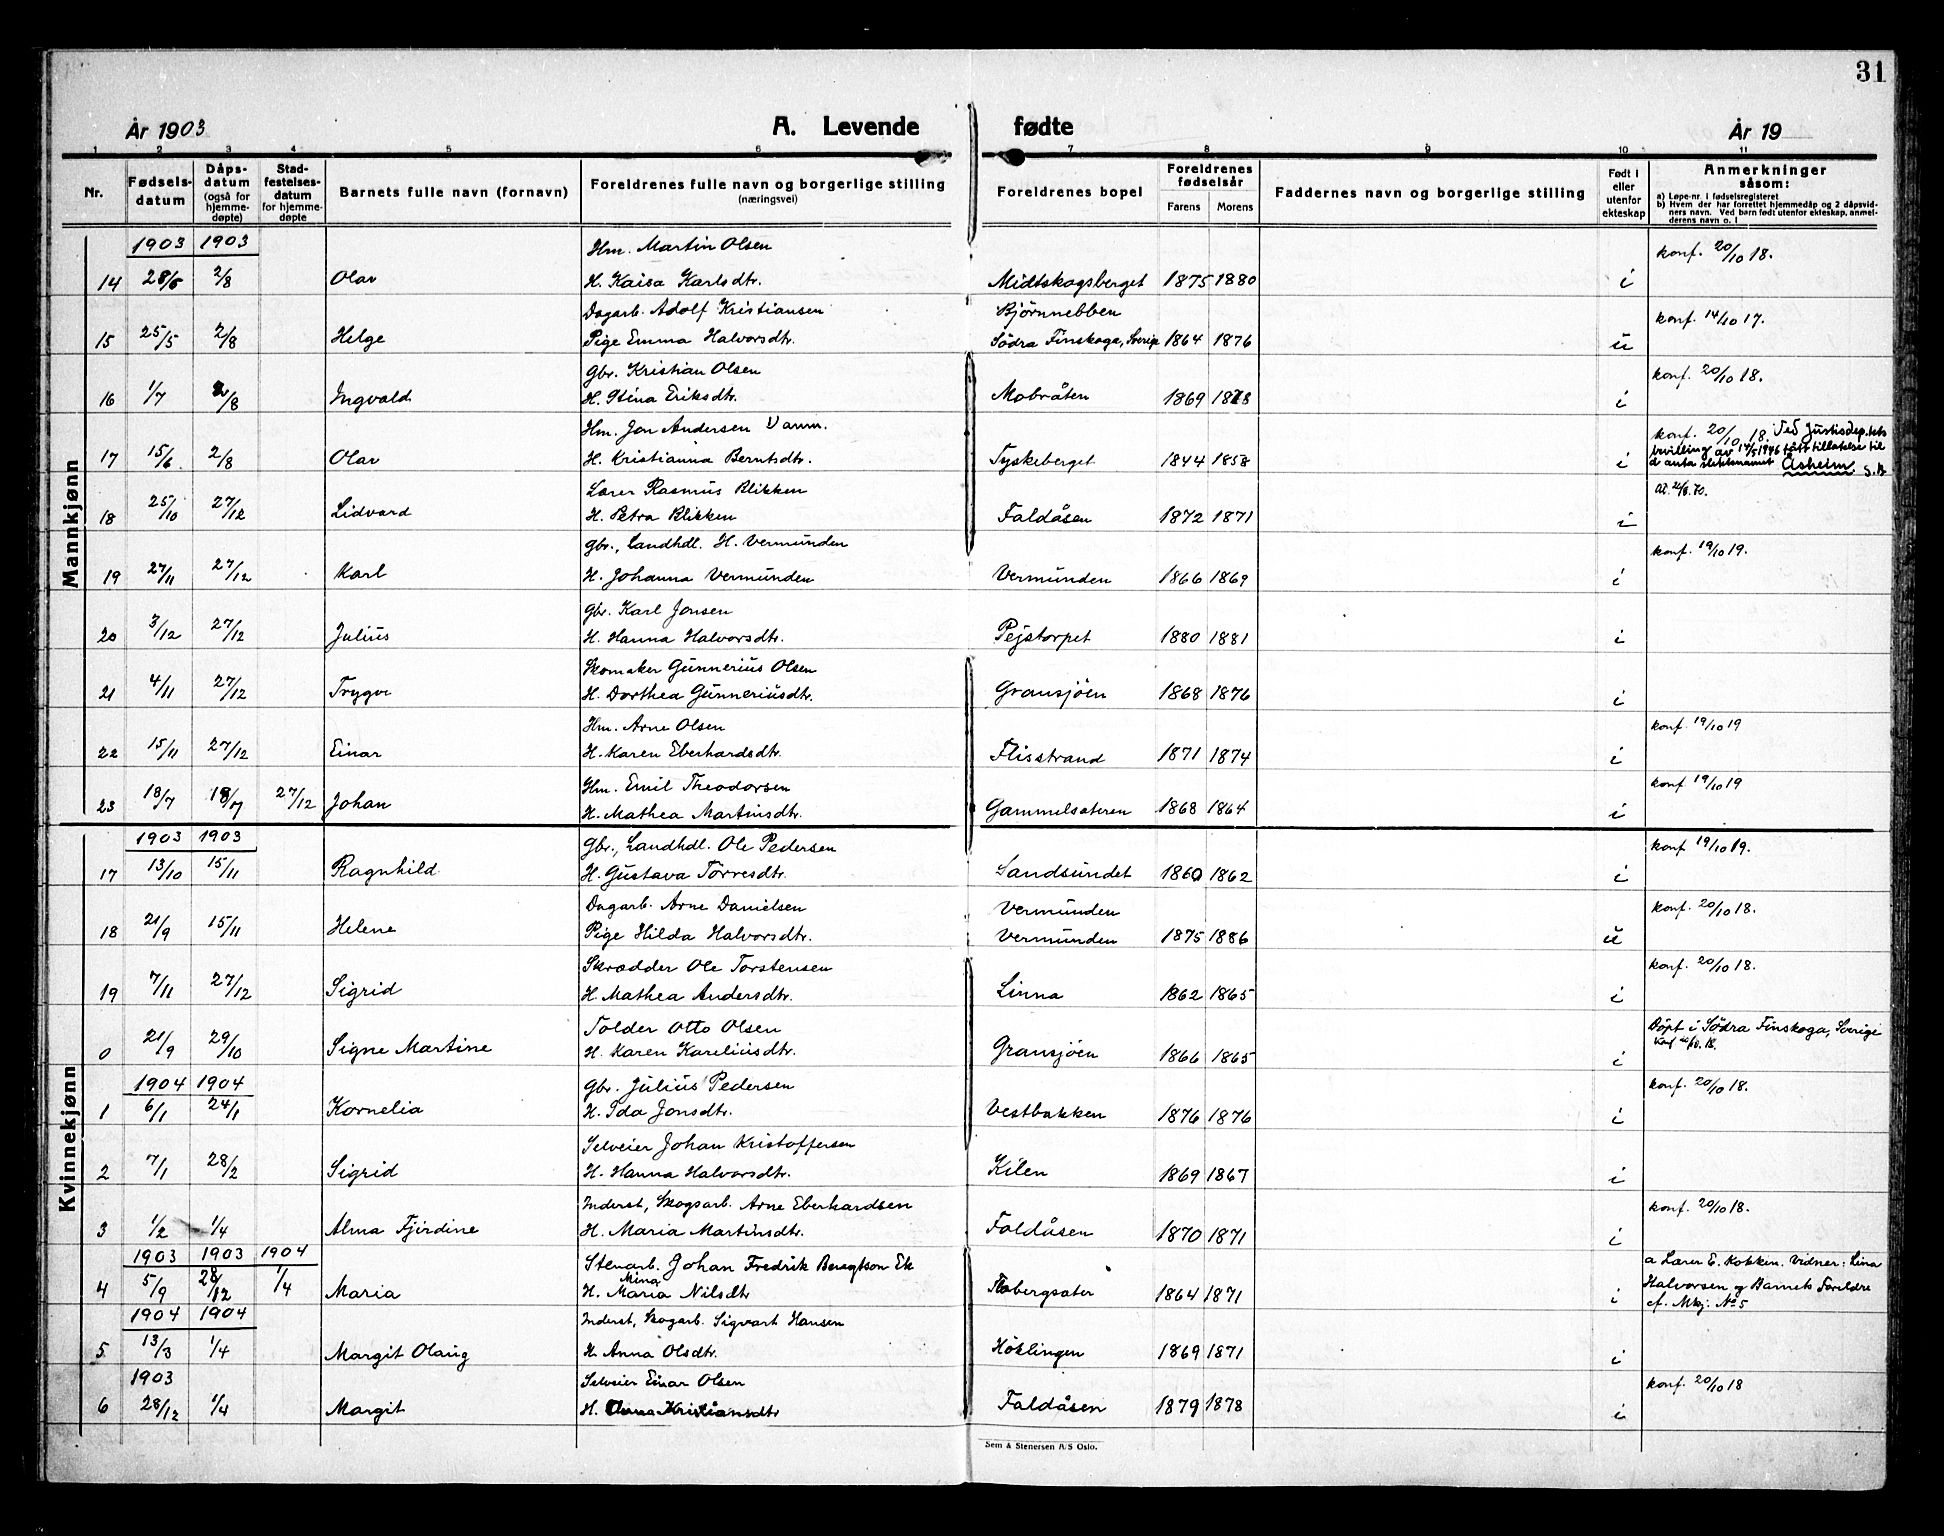 31
År 1903 A. Levende fødte År 19
1 2 3 4 5 6 7 8 9 10 11
Nr. Fødsels-datum Dåps-datum (også for hjemme-døpte) Stad-festelses-datum for hjemme-døpte Barnets fulle navn (fornavn) Foreldrenes fulle navn og borgerlige stilling (næringsvei) Foreldrenes bopel Foreldrenes fødselsår Farens Morens Faddernes navn og borgerlige stilling Født i eller utenfor ekteskap Anmerkninger såsom:
a) Løpe-nr. i fødselsregisteret
b) Hvem der har forrettet hjemmedåp og 2 dåpsvidners navn. Ved barn født utenfor ekteskap, anmelderens navn o. l
Mannkjønn
1903 1903 Hm. Martin Olsen konf. 20/10 18.
14 28/6 2/8 Olav H. Kaisa Karlsdtr. Midtskogsberget 1875 1880 i
Dagarb. Adolf Kristiansen Bjørnnebben konf. 14/10 17.
15 25/5 2/8 Helge Pige Emma Halvorsdtr. Södra Finskoga, Sverige 1864 1876 u
Gbr. Kristian Olsen konf. 20/10 18.
16 1/7 2/8 Ingvald H. Stina Eriksdtr. Mobråten 1869 1878 i
Hm. Jon Andersen konf. 20/10 18. Ved Justisdep.tets
17 15/6 2/8 Olav H. Kristianna Berntsdtr. Tyskeberget 1844 1858 i bevilling av 14/5 1946 fått tillatelse til
å anta slektsnamnet Åsheim. S.B
Lærer Rasmus Blikken
18 25/10 27/12 Lidvard H. Petra Blikken Faldåsen 1872 1871 i
Gbr., Landhdl. H. Vermunden konf. 19/10 19.
19 27/11 27/12 Karl H. Johanna Vermunden Vermunden 1866 1869 i
Gbr. Karl Jonsen
20 3/12 27/12 Julius H. Hanna Halvorsdtr. Pejstorpet 1880 1881 i
Skomaker Gunnerius Olsen
21 4/11 27/12 Trygve H. Dorthea Gunneriusdtr. Gransjöen 1868 1876 i
Hm. Arne Olsen konf. 19/10 19
22 15/11 27/12 Einar H. Karen Eberhardsdtr. Flisstrand 1871 1874 i
Hm. Emil Theodorsen konf. 19/10 19
23 18/7 18/7 27/12 Johan H. Mathea Martinsdtr. Gammelsæteren 1868 1864 i
Kvinnekjønn
1903 1903 Gbr., Landhdl. Ole Pedersen konf 19/10 19.
17 13/10 15/11 Ragnhild H. Gustava Törresdtr. Sandsundet 1860 1862 i
Dagarb. Arne Danielsen Vermunden konf. 20/10 18.
18 21/9 15/11 Helene Pige Hilda Halvorsdtr. Vermunden 1875 1886 u
Skrædder Ole Torstensen konf. 20/10 18.
19 7/11 27/12 Sigrid H. Mathea Andersdtr. Linna 1862 1865 i
Tolder Otto Olsen Döpt i Södra Finskoga, Sverige
0 21/9 29/10 Signe Martine H. Karen Kareliusdtr. Gransjöen 1866 1865 i Konf 20/10. 18.
1904 1904 Gbr. Julius Pedersen konf. 20/10 18.
1 6/1 24/1 Kornelia H. Ida Jonsdtr. Vestbakken 1876 1876 i
Selveier Johan Kristoffersen
2 7/1 28/2 Sigrid H. Hanna Halvorsdtr. Kilen 1869 1867 i
Inderst, Skogsarb. Arne Eberhardsen konf. 20/10 18.
3 1/2 1/4 Alma Fjirdine H. Maria Martinsdtr. Faldåsen 1870 1871 i
1903 1903 1904 Stenarb. Johan Fredrik Bengtson Ek a Lærer E. Kokken. Vidner: Lina
Mina
4 5/9 28/12 1/4 Maria H. Maria Nilsdtr Tobergsæter 1864 1871 i Halvorsen og Barnets Forældre
cf. Mkj. No 5
1904 1904 Inderst, Skogarb. Sigvart Hansen
5 13/3 1/4 Margit Olaug H. Anna Olsdtr. Höklingen 1869 1871 i
1903 Selveier Einar Olsen konf. 20/10 18
6 28/12 1/4 Margit H. Anna Kristiansdtr Faldåsen 1879 1878 i
Sem & Stenersen A/S Oslo.